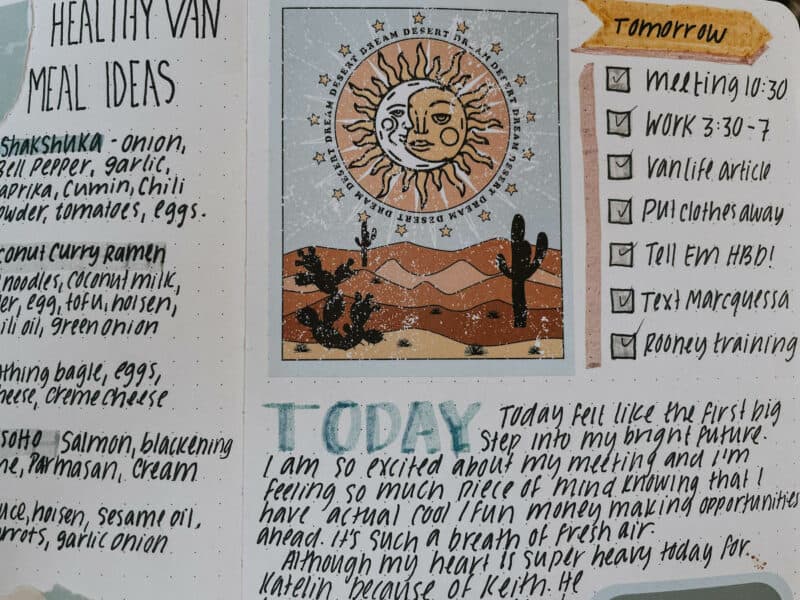 HEALTHY VAN
MEAL IDEAS
SHAKSHUKA - onion,
Bell pepper, garlic,
paprika, cumin, chili
powder, tomatoes, eggs.
coconut curry Ramen
noodles, coconut milk,
egg, tofu, hoisen,
chili oil, green onion
bagle, eggs,
cheese, cremecheese
Salmon, blackening
Parmasan, cream
hoisen, sesame oil,
carrots, garlic onion
DESERT DREAM DESERT DREAM DESERT DREAM DESERT DREAM DESERT DREAM DESERT DREAM
Tomorrow
meeting 10:30
WORK 3:30-7
Van life article
Put clothes away
Tell Em HBD!
Text Marcquessa
Rooney training
TODAY Today felt like the first big
step into my bright future.
I am so excited about my meeting and I'm
feeling so much piece of mind knowing that I
have actual cool / fun money making opportunities
ahead. It's such a breath of fresh air.
Although my heart is super heavy today for
Katelin because of Keith. He